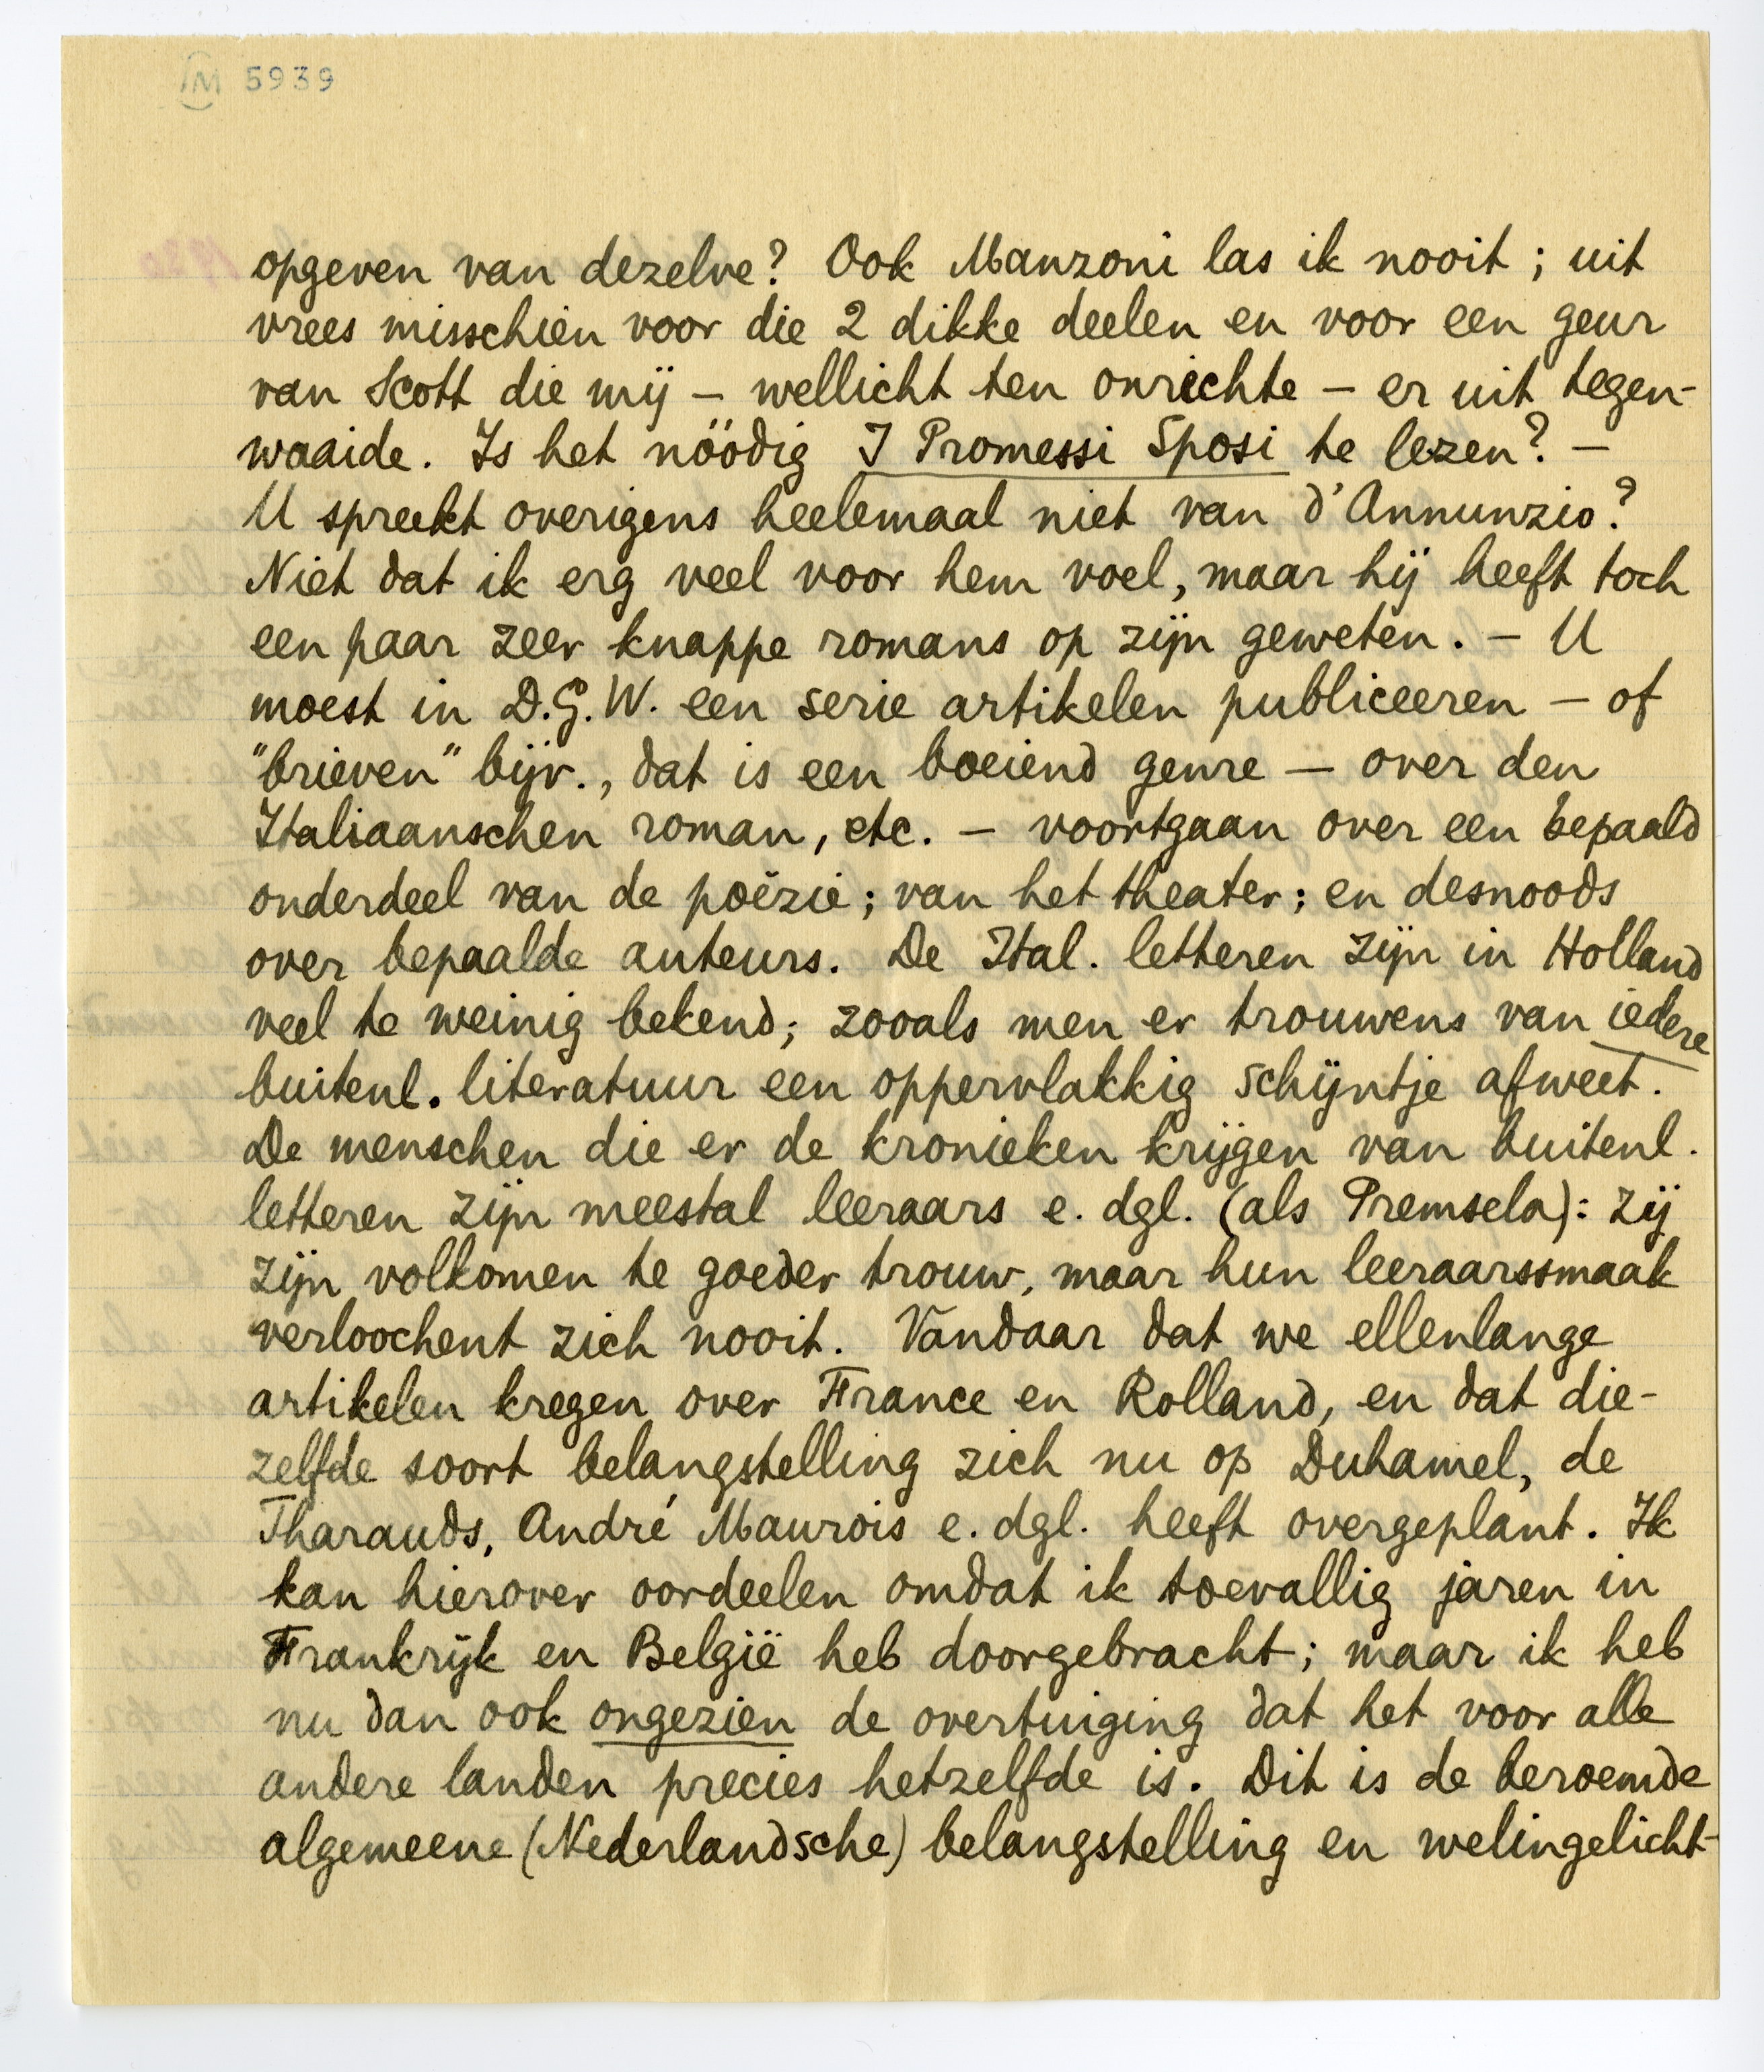 M 5939
opgeven van dezelve? Ook Manzoni las ik nooit; uit
vrees misschien voor die 2 dikke deelen en voor een geur
van Scott die mij – wellicht ten onrechte – er uit tegen-
waaide. Is het nöödig I Promessi Sposi te lezen? –
U spreekt overigens heelemaal niet van d'Annunzio?
Niet dat ik erg veel voor hem voel, maar hij heeft toch
een paar zeer knappe romans op zijn geweten. – U
moest in D.G.W. een serie artikelen publiceeren – of
"brieven" bijv., dat is een boeiend genre – over den
Italiaanschen roman, etc. – voortgaan over een bepaald
onderdeel van de poëzie; van het theater; en desnoods
over bepaalde auteurs. De Ital. letteren zijn in Holland
veel te weinig bekend; zooals men er trouwens van iedere
buitenl. literatuur een oppervlakkig schijntje afweet.
De menschen die er de kronieken krijgen van buitenl.
letteren zijn meestal leeraars e. dgl. (als Premsela): zij
zijn volkomen te goeder trouw, maar hun leeraarssmaak
verloochent zich nooit. Vandaar dat we ellenlange
artikelen kregen over France en Rolland, en dat die-
zelfde soort belangstelling zich nu op Duhamel, de
Tharauds, André Maurois e. dgl. heeft overgeplant. Ik
kan hierover oordeelen omdat ik toevallig jaren in
Frankrijk en België heb doorgebracht; maar ik heb
nu dan ook ongezien de overtuiging dat het voor alle
andere landen precies hetzelfde is. Dit is de beroemde
algemeene (Nederlandsche) belangstelling en welingelicht-